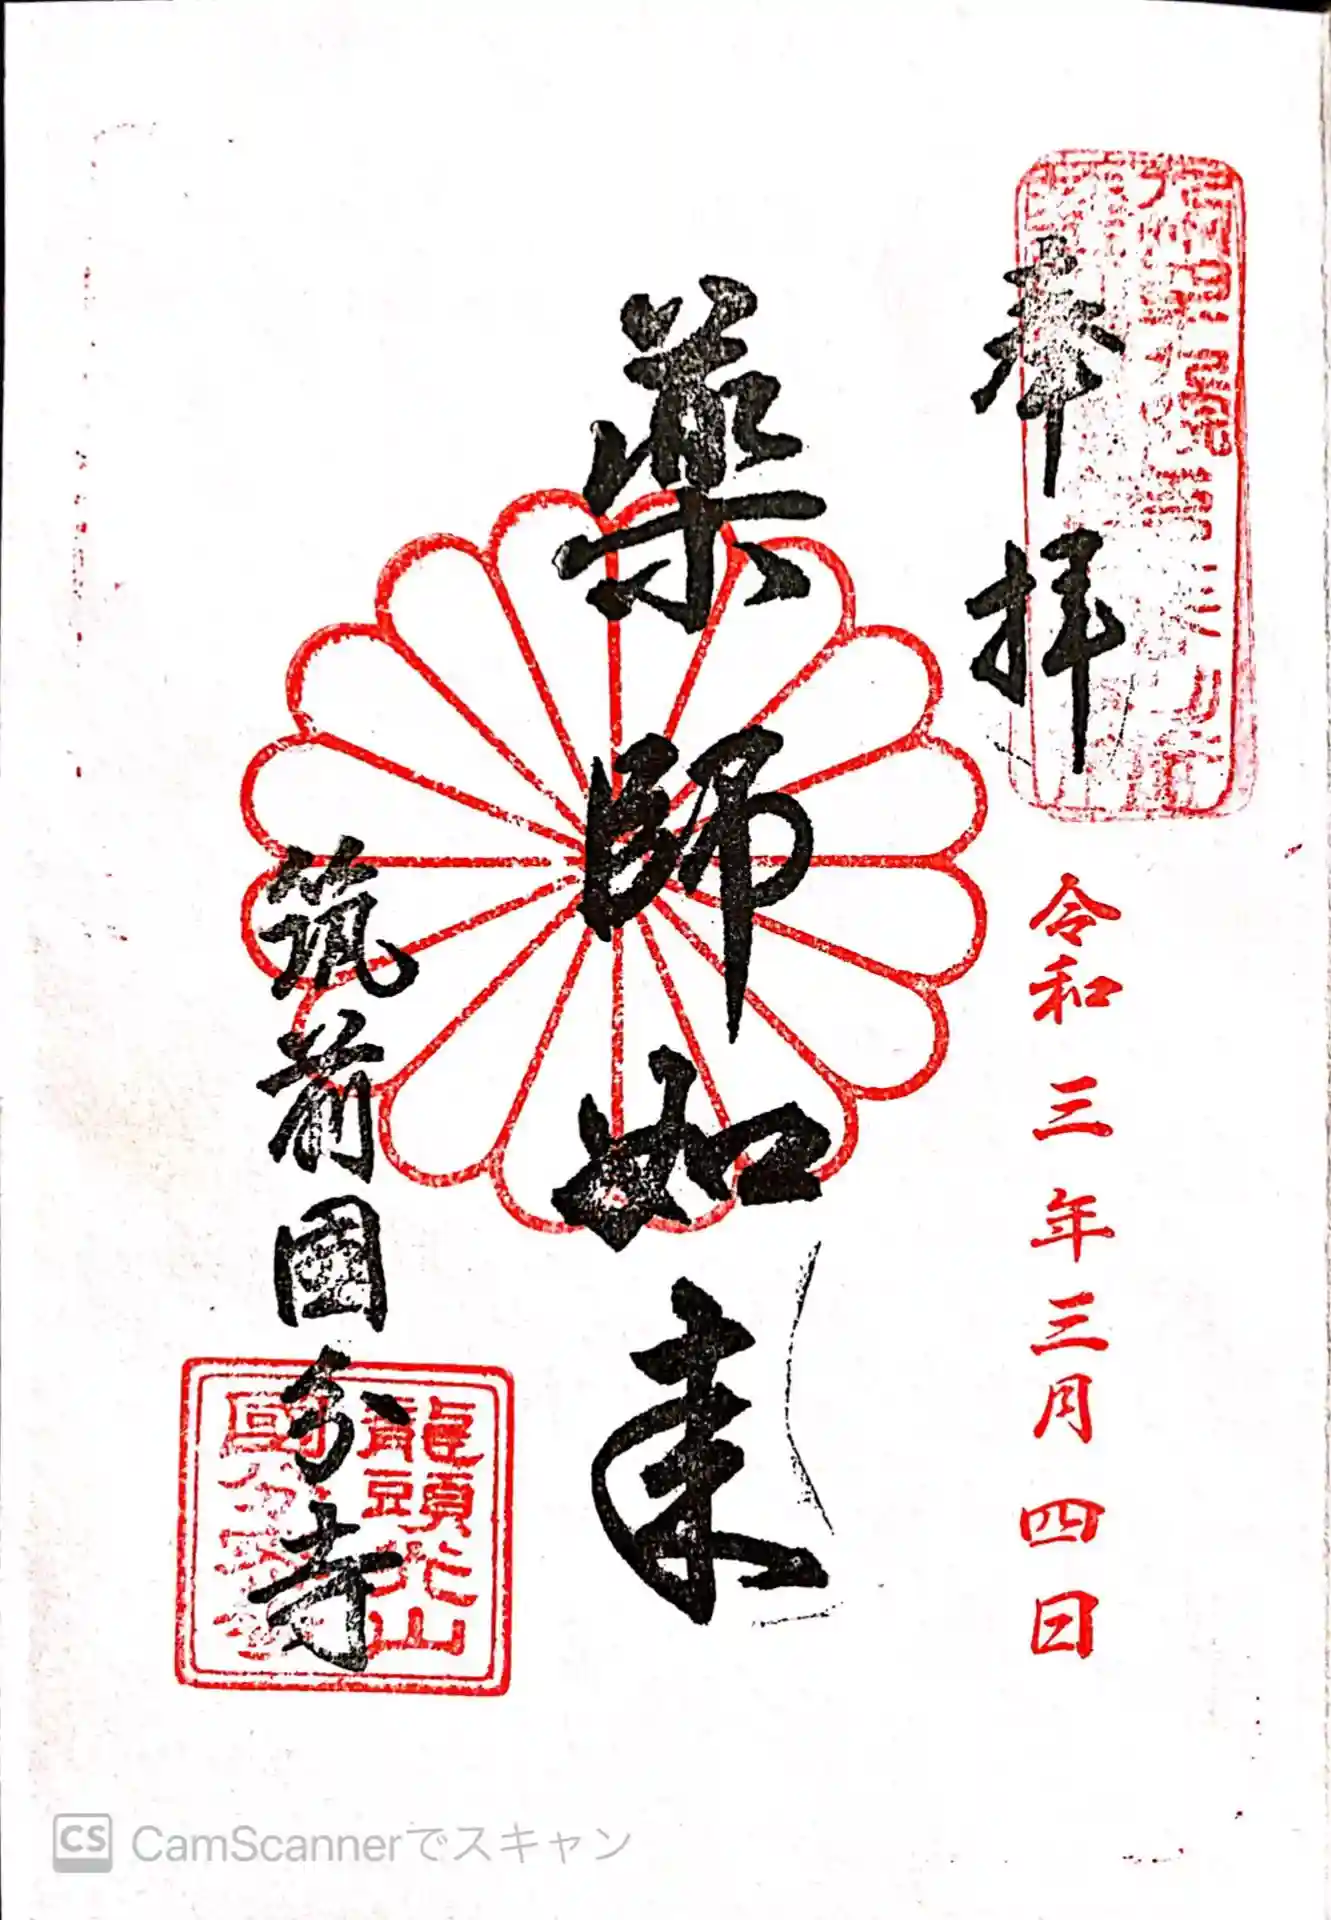 奉拝
令和三年三月四日
薬師如来
筑前國分寺
龍頭光山
國分寺
CS CamScannerでスキャン